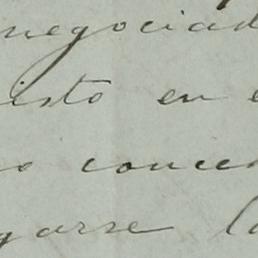 negociad
isto en e
o conce
garse la